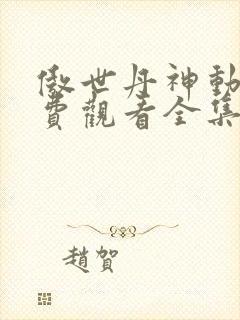 傲世丹神動
費觀看全集
趙賀